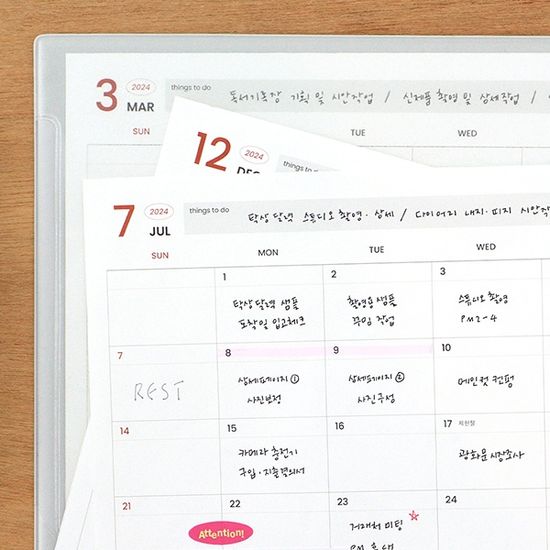 3 2024 things to do
독서기록장 기획 및 시안작업 / 신제품 촬영 및 상세작업 /
MAR
SUN TUE WED
12 2024 things to do
DEC
7 2024 things to do
탁상달력 스튜디오 촬영·상세 / 다이어리 내지·표지 시안작
JUL
SUN MON TUE WED
1 2 3
탁상달력 샘플 촬영용 샘플 스튜디오 촬영
포장일 입고체크 꾸밈 작업 PM 2-4
7 8 9 10
REST 상세페이지 ① 상세페이지 ② 메인컷 컨펌
사진보정 사진구성
14 15 16 17 제헌절
카메라 충전기 광화문 시장조사
구입·지출결의서
21 22 23 24
Attention! 거래처 미팅
PM